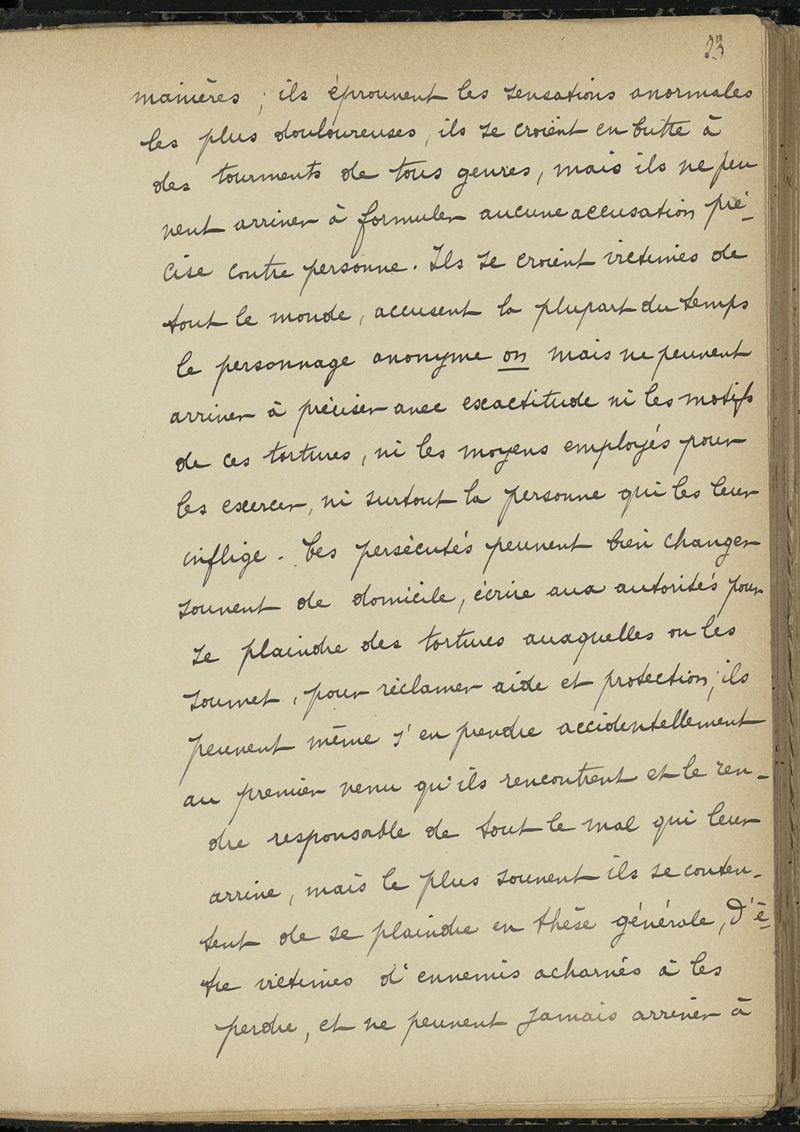 23
manières ; ils éprouvent les sensations anormales
les plus douloureuses, ils se croient en butte à
des tourments de tous genres, mais ils ne peu
vent arriver à formuler aucune accusation pré-
cise contre personne. Ils se croient victimes de
tout le monde, accusent la plupart du temps
le personnage anonyme on mais ne peuvent
arriver à préciser avec exactitude ni les motifs
de ces tortures, ni les moyens employés pour
les exercer, ni surtout la personne qui les leur
inflige. Ces persécutés peuvent bien changer
souvent de domicile, écrire aux autorités pour
se plaindre des tortures auxquelles on les
soumet, pour réclamer aide et protection; ils
peuvent même s'en prendre accidentellement
au premier venu qu'ils rencontrent et le ren-
dre responsable de tout le mal qui leur
arrive, mais le plus souvent ils se conten-
tent de se plaindre en thèse générale, d'ê-
tre victimes d'ennemis acharnés à les
perdre, et ne peuvent jamais arriver à